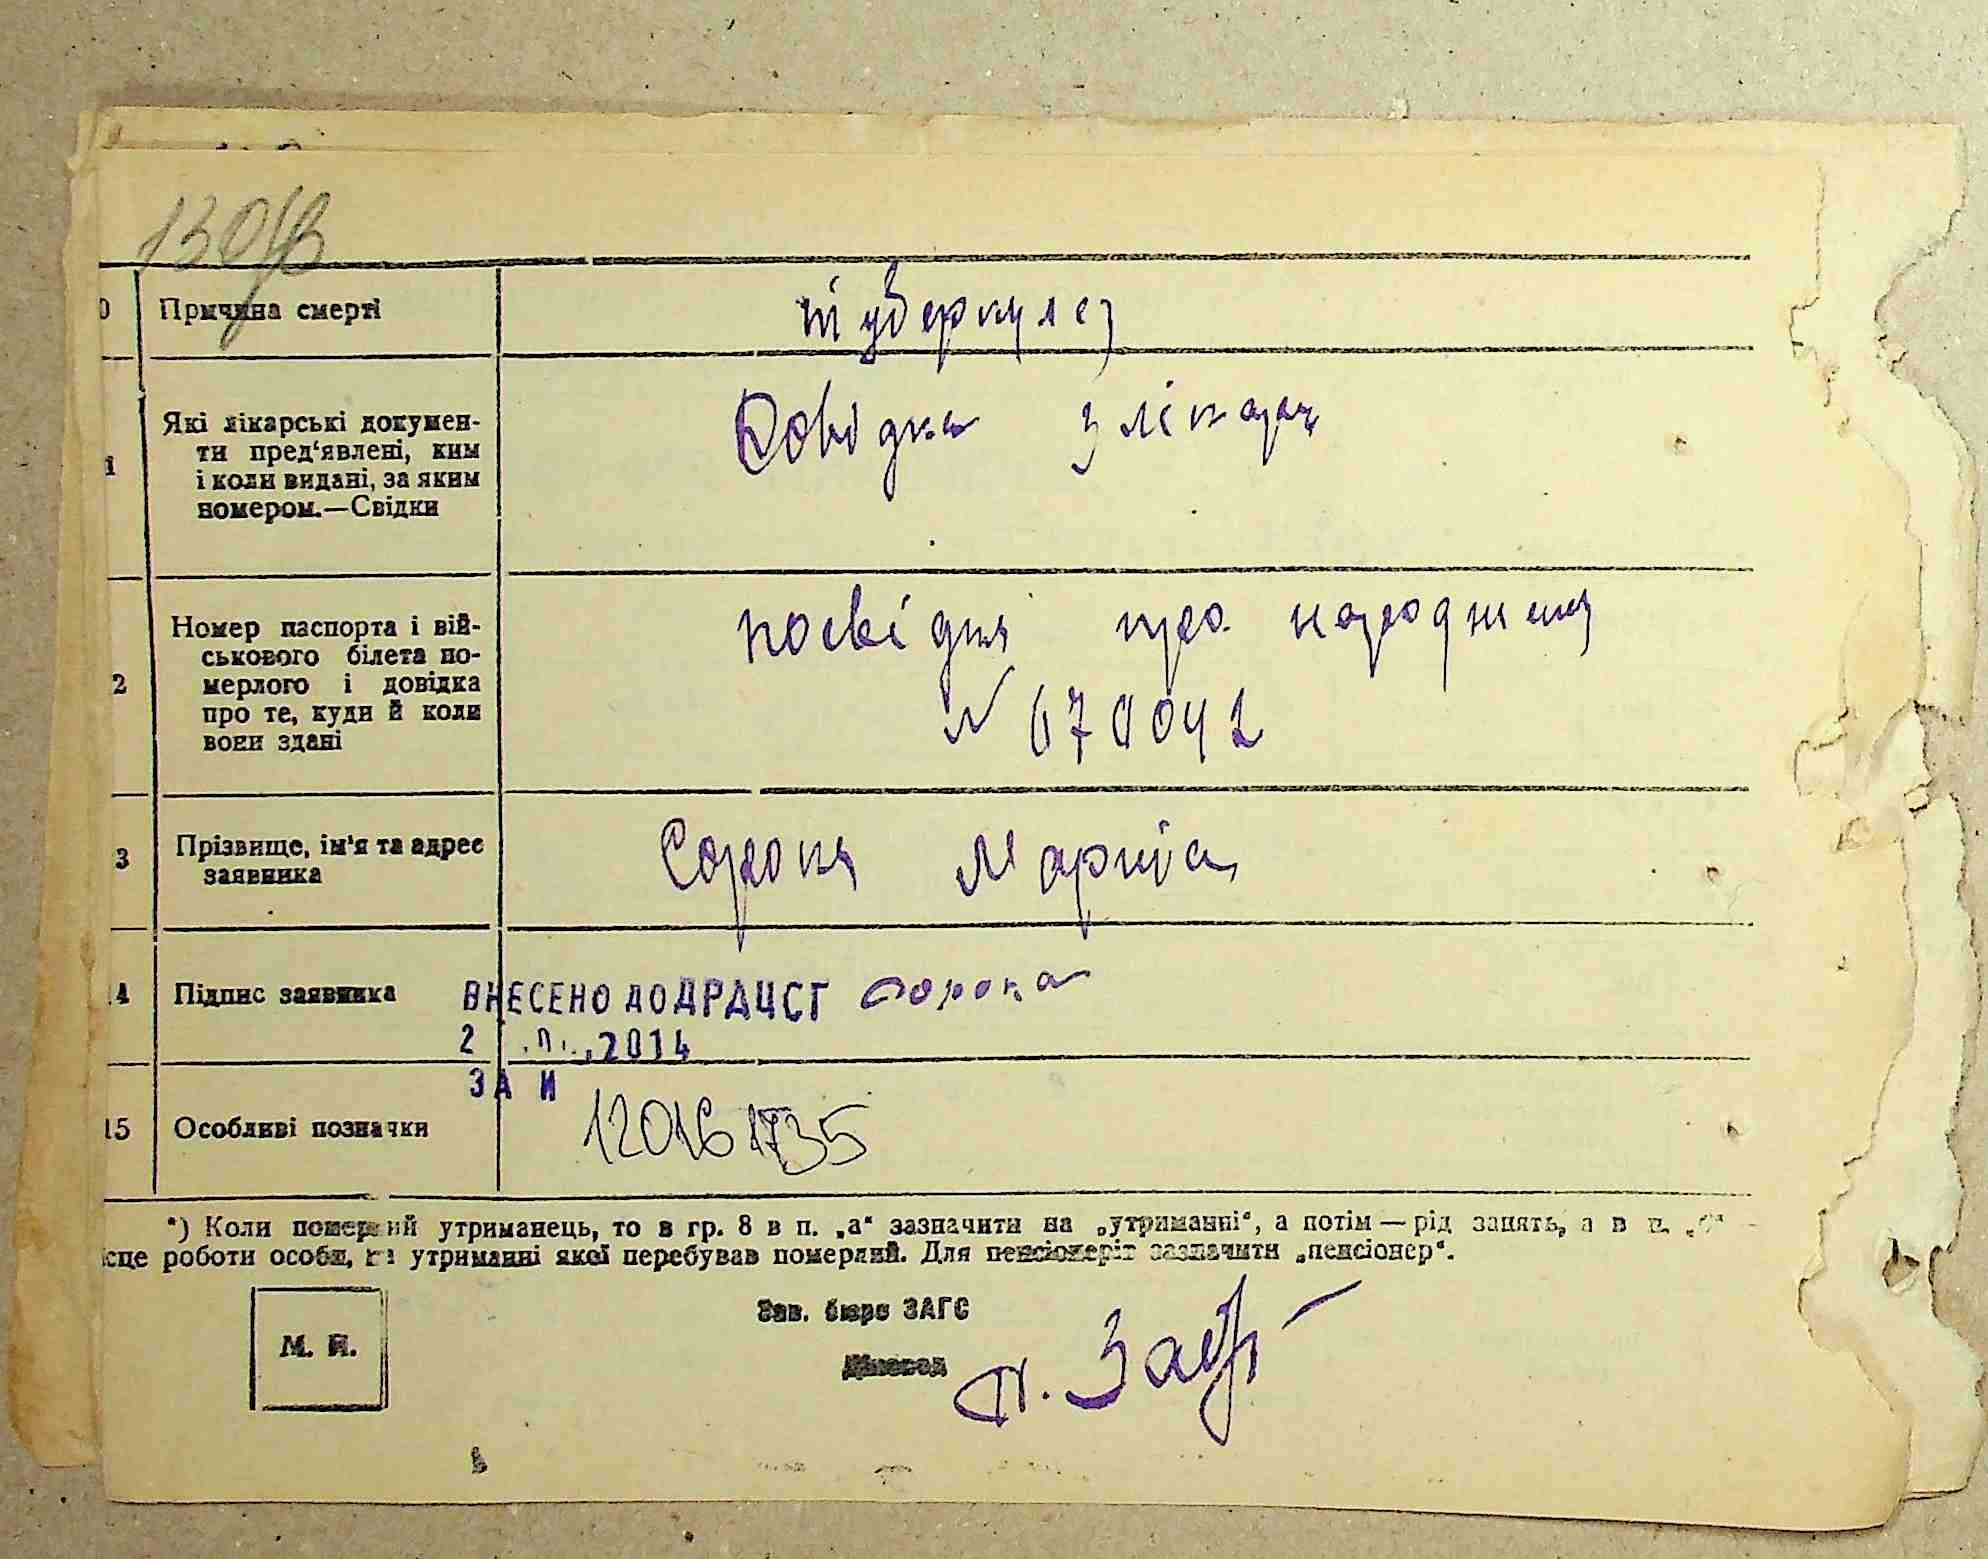 0 Причина смерті туберкулез
1 Які лікарські докумен-
ти пред'явлені, ким
і коли видані, за яким
номером.—Свідки
Довідка з лікаря
2 Номер паспорта і вій-
ськового білета по-
мерлого і довідка
про те, куди й коли
вони здані
посвідця про народження
N 670042
3 Прізвище, ім'я та адрес
заявника
Сорока Мариія
14 Підпис заявника Сорока
ВНЕСЕНО ДО ДРАЦСГ
2 2014
ЗА И
15 Особливі позначки 12016 1735
*) Коли померлий утриманець, то в гр. 8 в п. „а“ зазначити на „утриманні“, а потім — рід занять, а в п.
сце роботи особи, на утриманні якої перебував померлий. Для пенсіонерів зазначити „пенсіонер“.
М. П.
Зав. бюро ЗАГС
Діловод